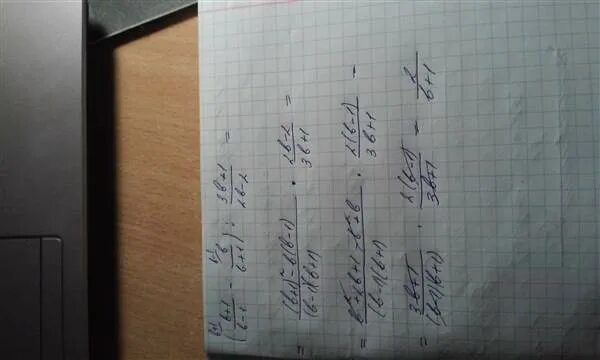 (b+1/b-1 - b/b+1) : 3b+1/2b-2 =
= (b+1)² - b(b-1)/(b-1)(b+1) · 2b-2/3b+1 =
= b²+2b+1-b²+b/(b-1)(b+1) · 2(b-1)/3b+1 =
= 3b+1/(b-1)(b+1) · 2(b-1)/3b+1 = 2/b+1